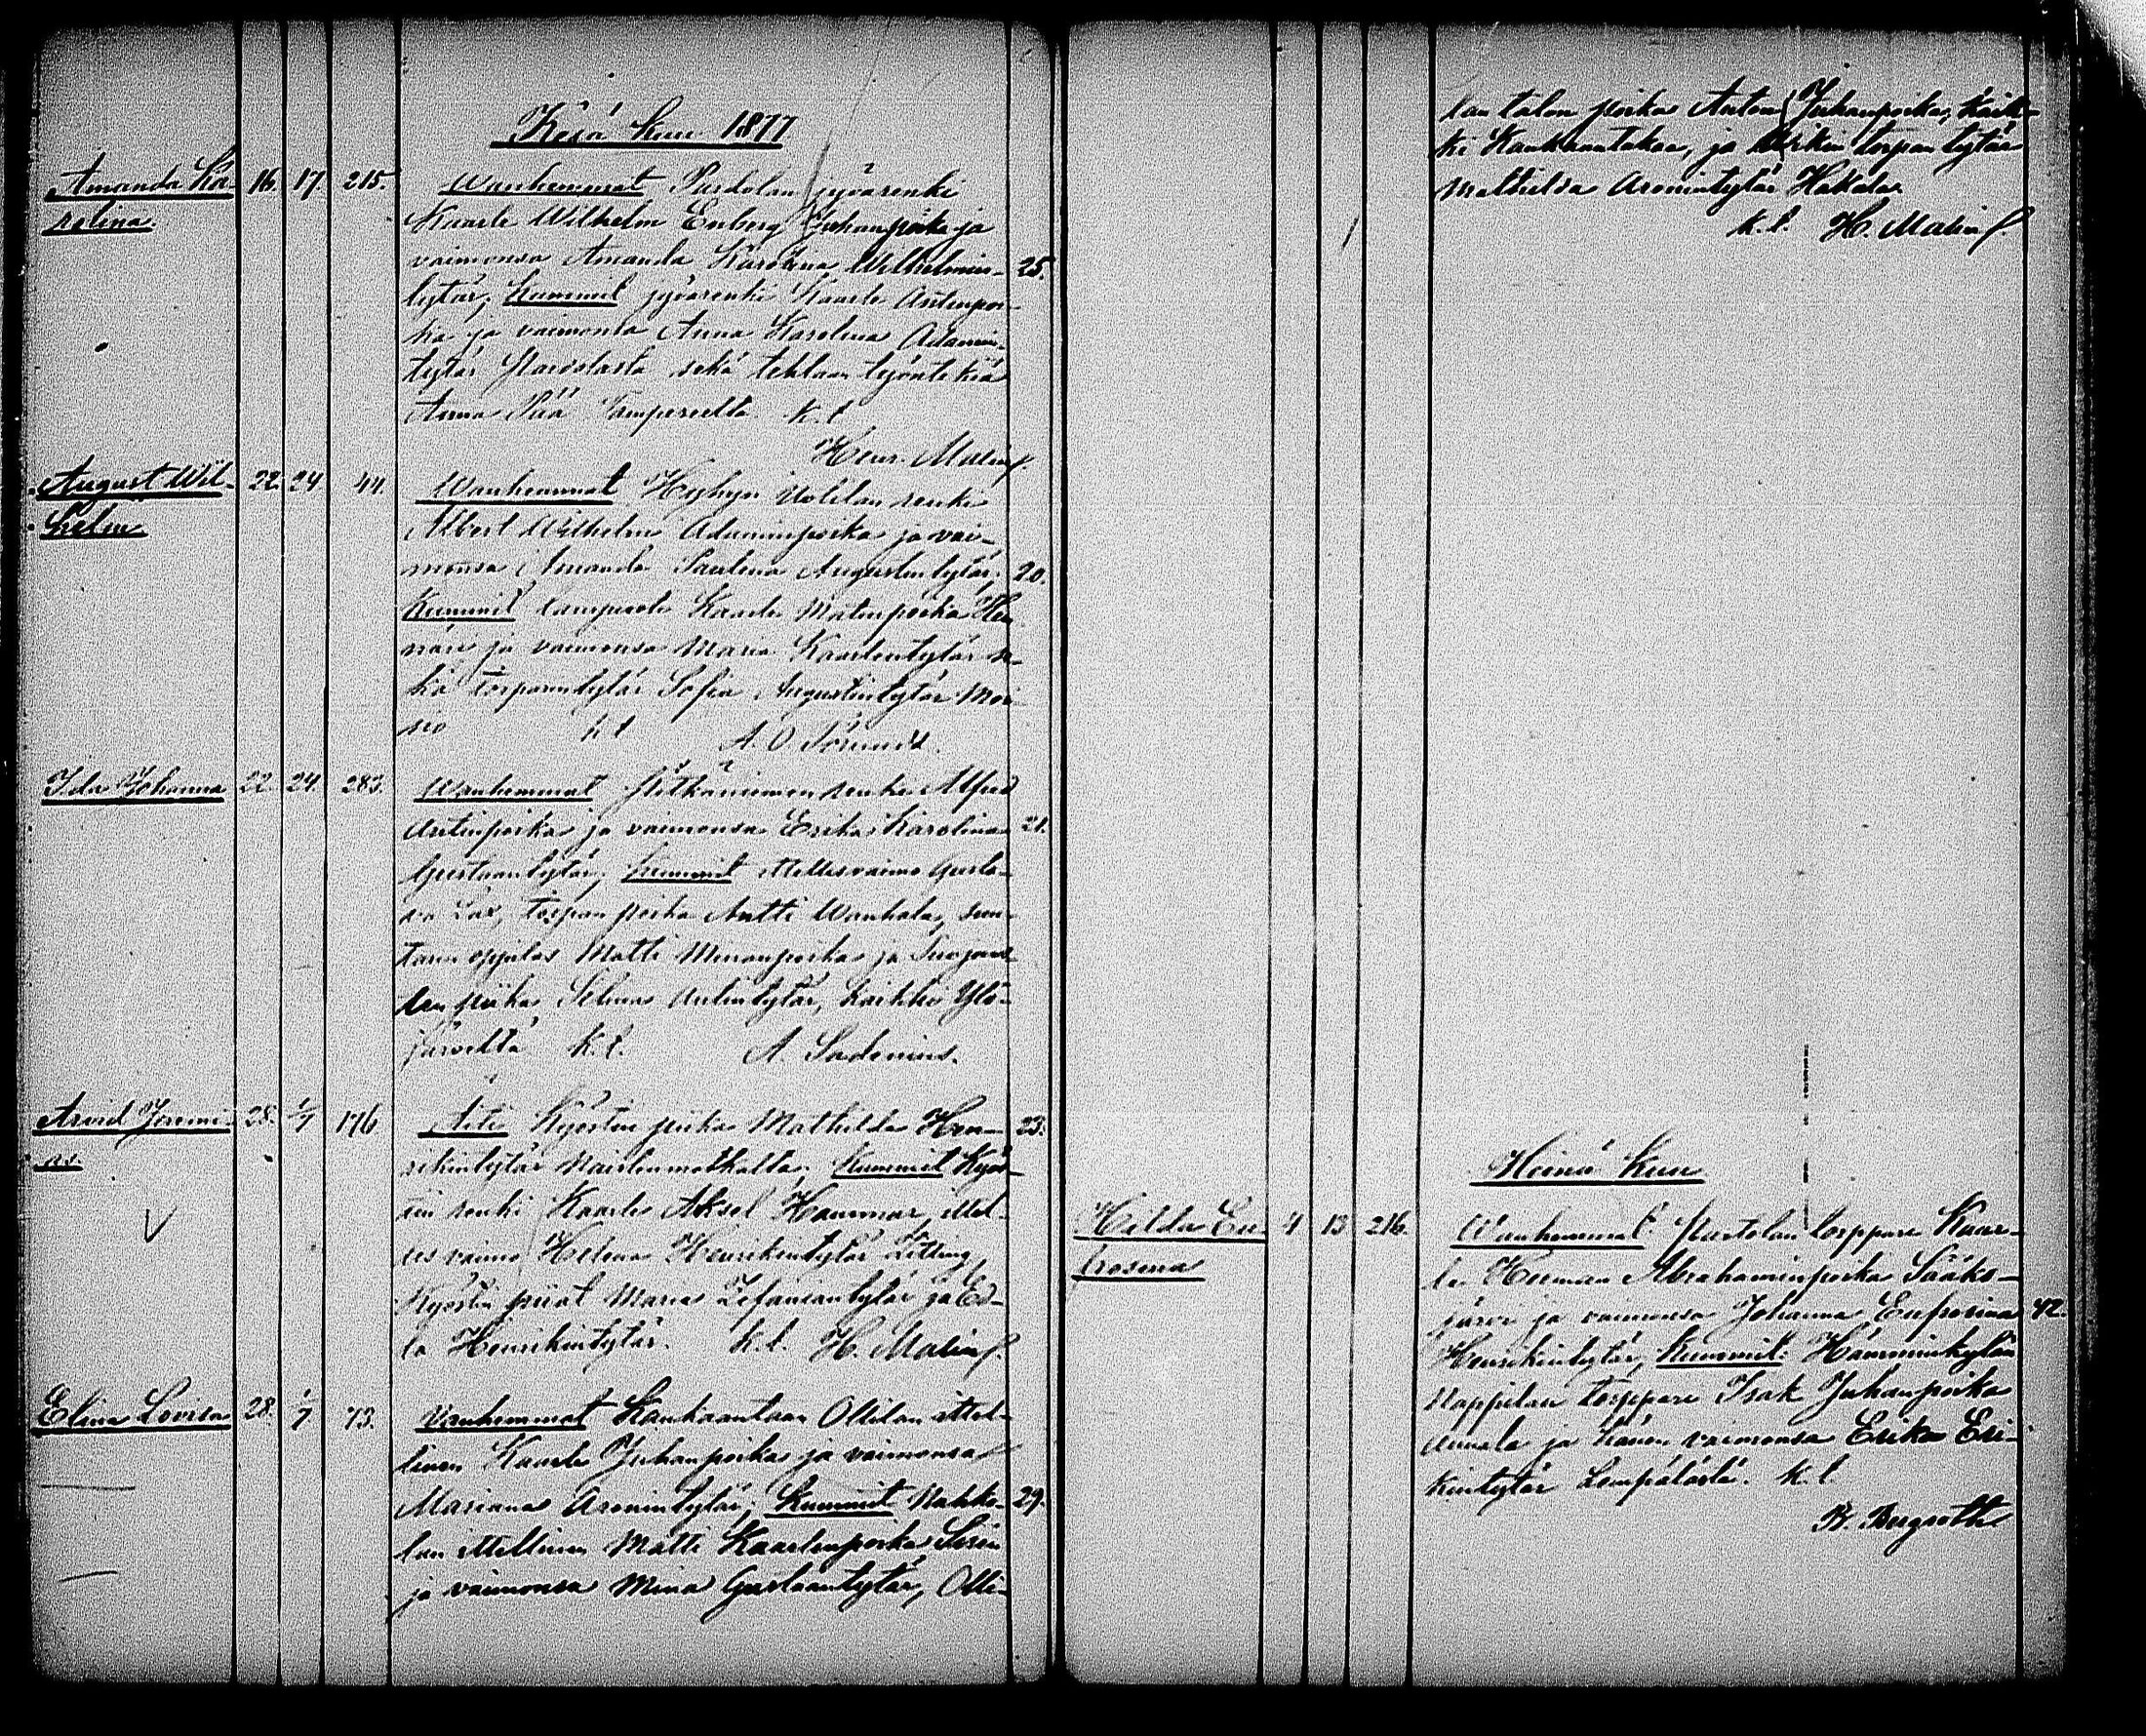 Kesä kuu 1877
Amanda Ka- 16. 17. 215. Wanhemmat Partolan jyvärenki
rolina. Kaarle Wilhelm Enberg Juhanpoika ja
vaimonsa Amanda Karolina Wilhelmin- 25.
tytär; Kummit jyvärenki Kaarle Antinpoi-
ka ja vaimonsa Anna Karolina Adamin-
tytär sekä tehtaan työntekiä
Anna Pää Tampereelta k.l
Henr. Malin
August Wil- 22. 24 44. Wanhemmat Hyhyn Uotilan renki
helm Albert Wilhelm Adaminpoika ja vai-
monsa Amanda Paulina Augustintytär; 20.
Kummit Kaarle Matinpoika
ja vaimonsa Maria Kaarlentytär se-
kä torpparintytär Sofia Augustintytär Moi-
sio k.l A. O.
Ida Johanna 22. 24. 283. Wanhemmat Pitkäniemen renki Alfred
Antinpoika ja vaimonsa Erika Karolina 21.
Gustaantytär; Kummit ittellisvaimo Gusta-
va Lax, torpan poika Antti Wanhala, sun-
tarin oppilas Matti Minanpoika ja
lan piika Selma Antintytär, kaikki Ylö-
järveltä k.l. A. Sadenius.
Arvid Jeremi- 28. 1/7 176 Äiti Kyöstin piika Mathilda Hen-
as. rikintytär Naistenmatkalta; Kummit Kyös- 23.
tin renki Kaarle Aksel Hammar, ittel-
lis vaimo Helena Henrikintytär Litting,
Kyöstin piiat Maria Zefaniantytär ja Ed-
la Henrikintytär. k.l. H. Malin
Elina Lovisa 28. 1/7 73. Vanhemmat Kankaantaan Ollilan ittel-
linen Kaarle Juhanpoika ja vaimonsa
Mariana Aronintytär; Kummit Nakko- 29.
lan ittellinen Matti Kaarlenpoika Sirén
ja vaimonsa Mina Gustaantytär, Olli-
lan talon poika Anton Juhanpoika, kaik-
ki Kankaantakaa, ja torpan tytär
Mathilda Aronintytär Hakala
k.l. H. Malin
Heinä kuu
Hilda Eu- 4 13 216. Wanhemmat: Partolan torppari Kaar-
frosina le Herman Abrahaminpoika Sääks-
järvi ja vaimonsa Johanna Eufrosina 42.
Henrikintytär; Kummit: Hämminkylän
Nappilan torppari Isak Juhanpoika
Annala ja hänen vaimonsa Erika Eri-
kintytär Lempäälästä. k.l
B. Bergroth